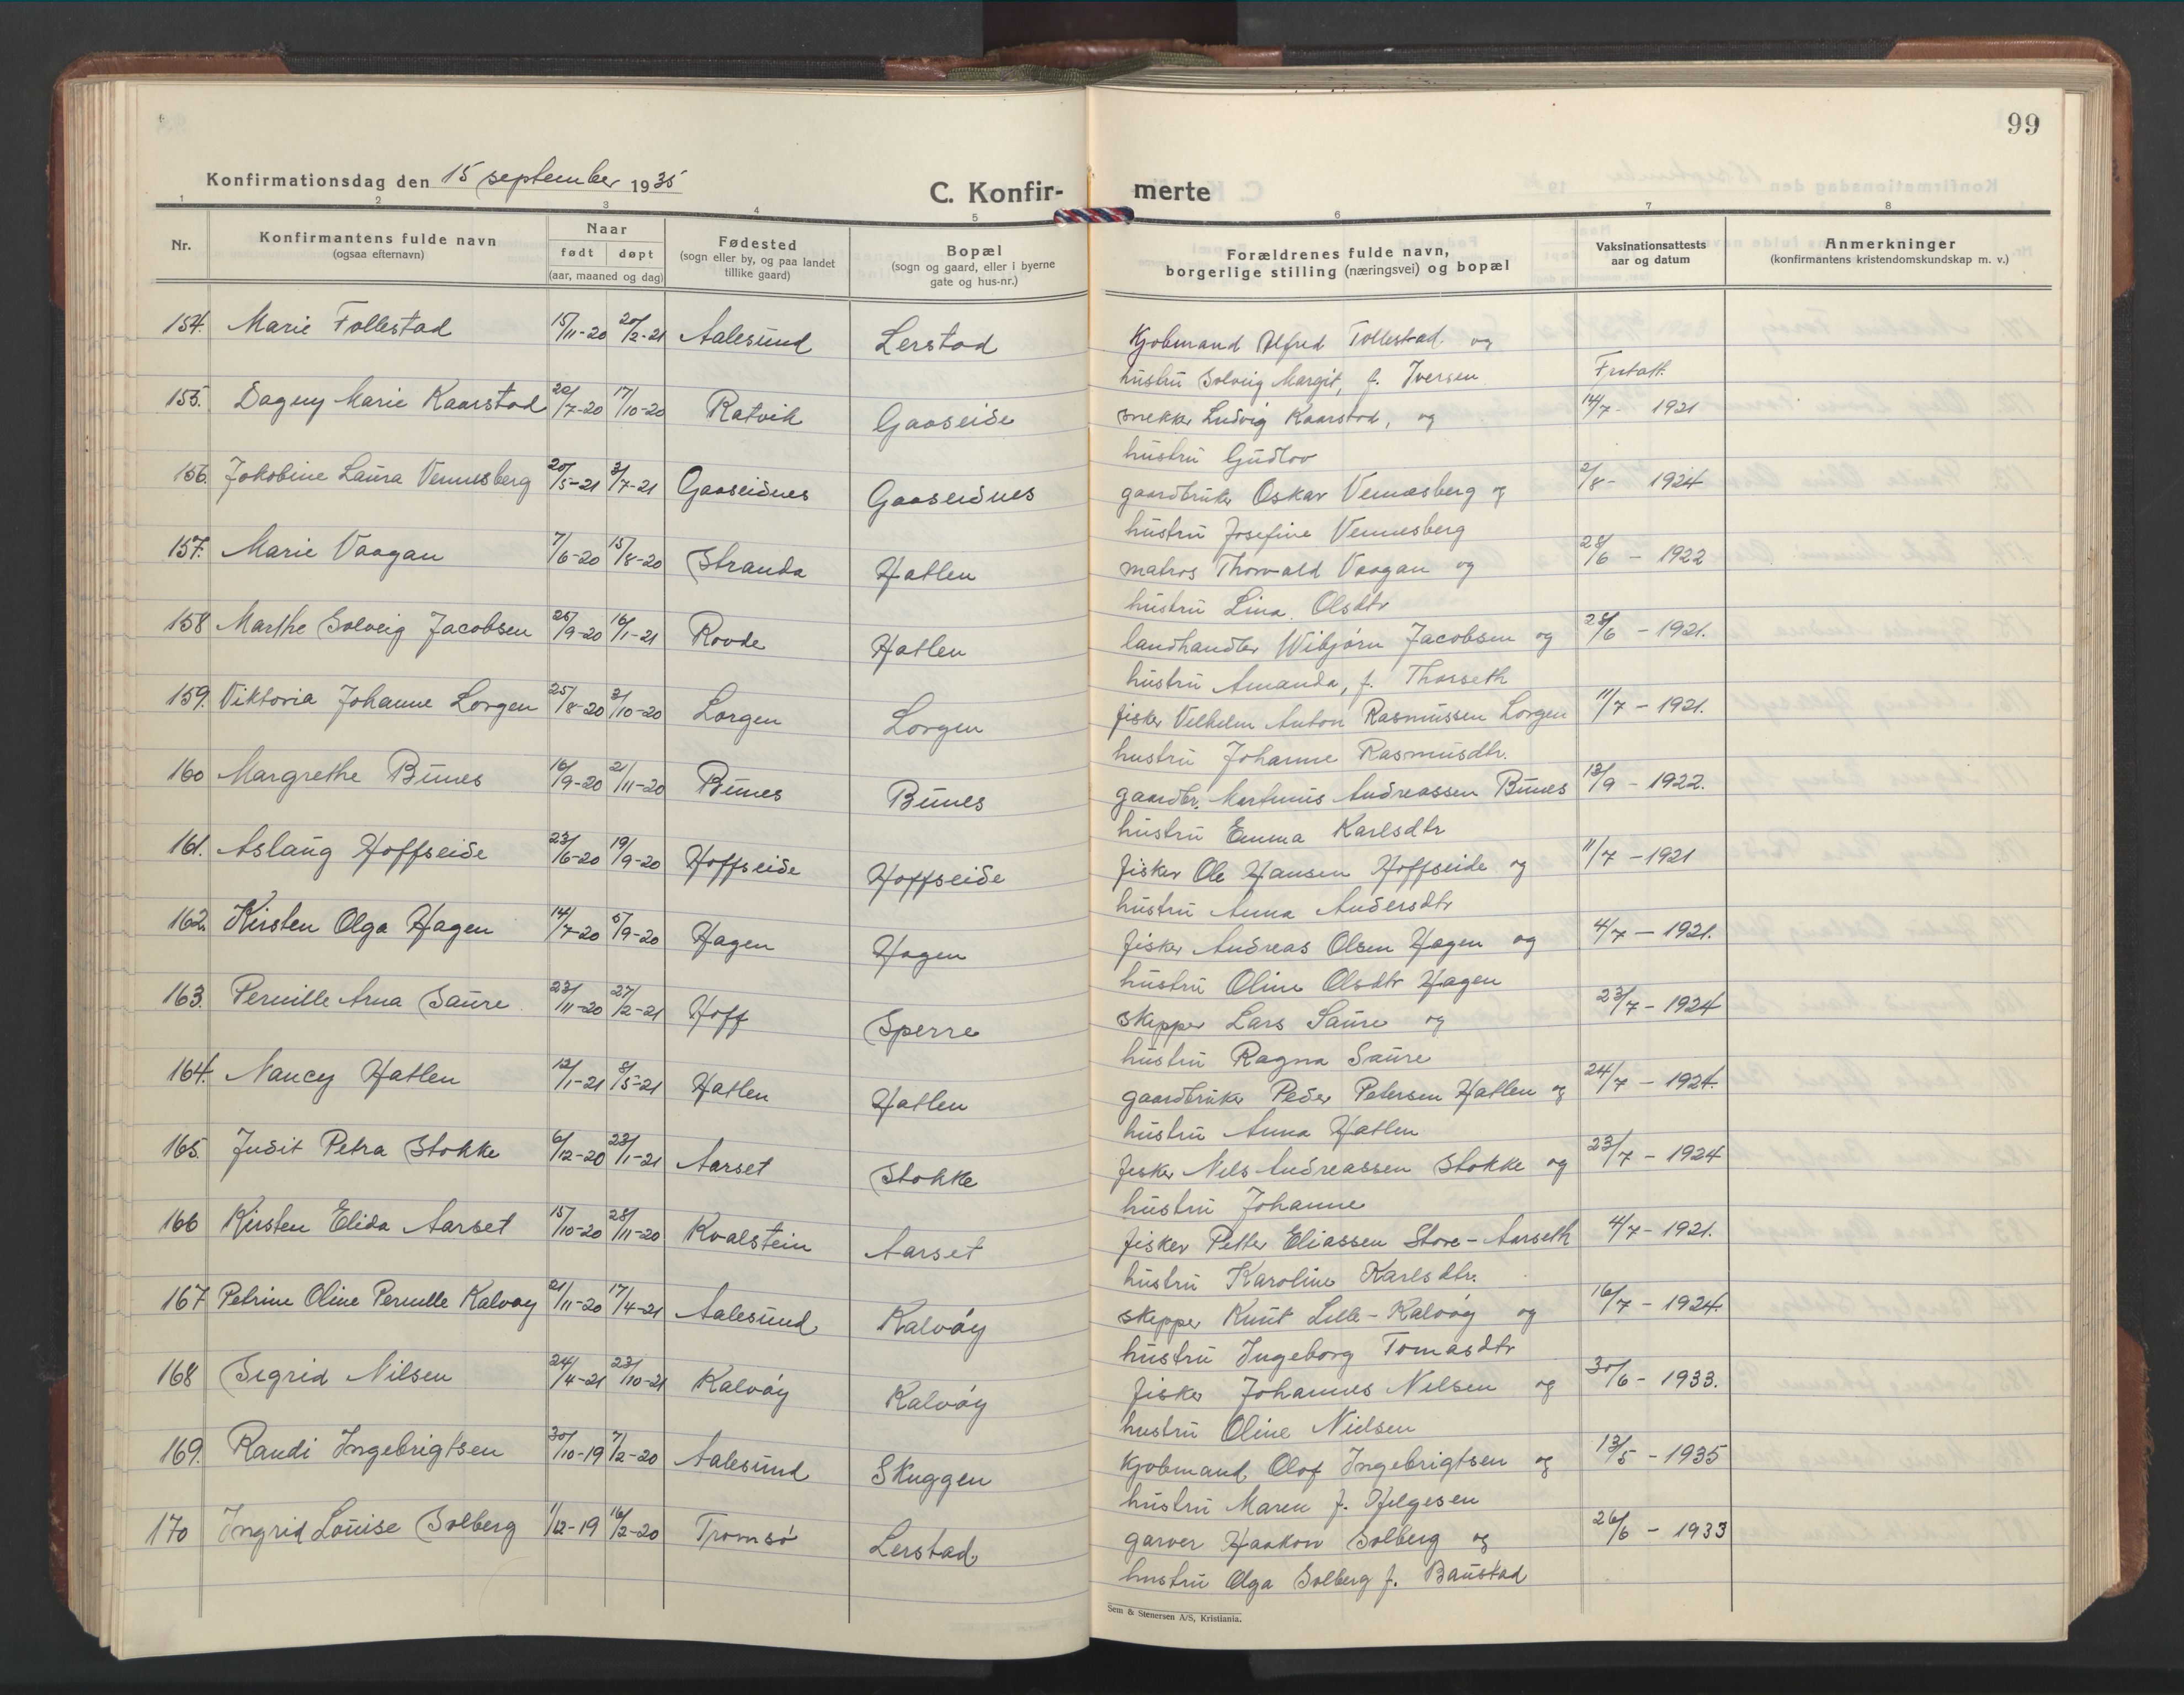 99
Konfirmationsdag den 15 september 1935
C. Konfir- merte
1 2 3 4 5 6 7 8
Nr.
Konfirmantens fulde navn
(ogsaa efternavn)
Naar
født døpt
(aar, maaned og dag)
Fødested
(sogn eller by, og paa landet
tillike gaard)
Bopæl
(sogn og gaard, eller i byerne
gate og hus-nr.)
Forældrenes fulde navn,
borgerlige stilling (næringsvei) og bopæl
Vaksinationsattests
aar og datum
Anmerkninger
(konfirmantens kristendomskundskap m. v.)
154. Marie Tollestad 15/11-20 20/2-21 Aalesund Lerstad Kjøbmand Alfred Tollestad og
hustru Solveig Margit, f. Iversen Fritatt.
155. Dagny Marie Kaarstad 20/7-20 17/10-20 Ratvik Gaaseide snekker Ludvig Kaarstad, og 14/7- 1921
hustru Gudlov
156. Jakobine Laura Vennesberg 20/5-21 3/7-21 Gaaseidnes Gaaseidnes gaardbruker Oskar Vennesberg og 2/8- 1924
hustru Josefine Vennesberg
157. Marie Vaagan 7/6-20 15/8-20 Stranda Hatlen matros Thorvald Vaagan og 28/6 - 1922
hustru Lina Olsdtr
158 Marthe Solveig Jacobsen 25/9-20 16/1-21 Rovde Hatlen landhandler Wibjørn Jacobsen og 28/6 - 1921.
hustru Amanda, f. Thorseth
159. Viktoria Johanne Lorgen 25/8-20 3/10-20 Lorgen Lorgen fisker Vilhelm Anton Rasmussen Lorgen 11/7 - 1921.
hustru Johanne Rasmusdtr.
160 Margrethe Bunes 16/9-20 21/11-20 Bunes Bunes gaardbr. Martinus Andreassen Bunes 13/9 - 1922.
hustru Emma Karlsdtr
161. Aslaug Hoffseide 23/6-20 19/9-20 Hoffseide Hoffseide fisker Ole Hansen Hoffseide og 11/7 - 1921
hustru Anna Andersdtr
162. Kirsten Olga Hagen 14/7-20 5/9-20 Hagen Hagen fisker Andreas Olsen Hagen og 4/7 - 1921.
hustru Oline Olsdtr Hagen
163. Pernille Arna Saure 23/11-20 27/2-21 Hoff Sperre skipper Lars Saure og 23/7 - 1924
hustru Ragna Saure
164. Nancy Hatlen 12/1-21 8/5-21 Hatlen Hatlen gaardbruker Peder Petersen Hatlen og 24/7 - 1924.
hustru Anna Hatlen
165. Judit Petra Stokke 6/12-20 23/1-21 Aarset Stokke fisker Nils Andreassen Stokke og 23/7 - 1924
hustru Johanne
166 Kirsten Elida Aarset 15/10-20 28/11-20 Kvalstein Aarset fisker Petter Eliassen Store-Aarseth 4/7 - 1921.
hustru Karoline Karlsdtr.
167 Petrine Oline Pernille Kalvøy 21/11-20 17/4-21 Aalesund Kalvøy skipper Knut Lille-Kalvøy og 16/7 - 1924.
hustru Ingeborg Tomasdtr
168 Sigrid Nilsen 24/4-21 23/10-21 Kalvøy Kalvøy fisker Johannes Nilsen og 30/6 - 1933.
hustru Oline Nielsen
169. Randi Ingebrigtsen 30/10-19 7/2-20 Aalesund Skuggen Kjøbmand Olof Ingebrigtsen og 13/5 - 1935
hustru Maren f. Helgesen
170 Ingrid Louise Solberg 1/12-19 16/2-20 Tromsø Lerstad garver Haakon Solberg og 26/6 - 1933
hustru Olga Solberg f. Baustad
Sem & Stenersen A/S, Kristiania.